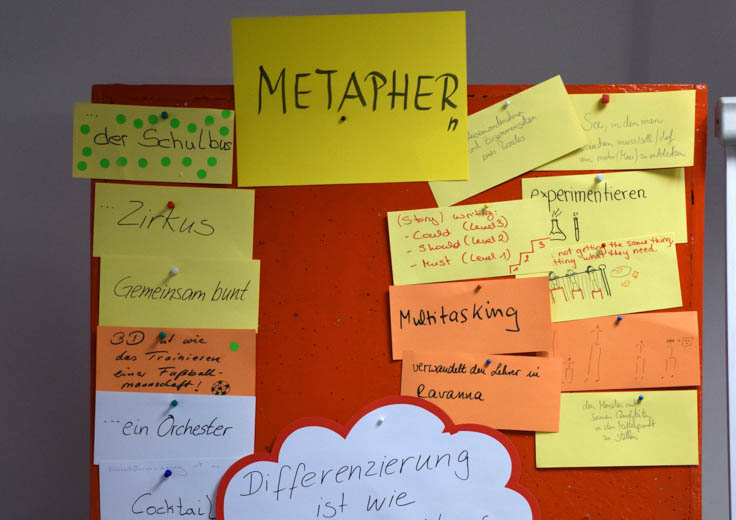 METAPHER
n
...
der Schulbus
Zirkus
Gemeinsam bunt
3D ist wie
das Trainieren
einer Fußball-
mannschaft!
... ein Orchester
Cocktail
und Zusammensetzen
eines Puzzles
See, in den man
tauchen muss/soll/darf
um mehr/Meer) zu entdecken
experimentieren
(Story) writing:
- Could (Level 3)
- Should (Level 2)
- Must (Level 1)
1 2 3
: not getting the same thing,
getting what they need.
Multitasking
verwandelt den Lehrer in
Ravanna
den Menschen mit
seinen Qualitäten
in den Mittelpunkt
zu stellen
Differenzierung
ist wie